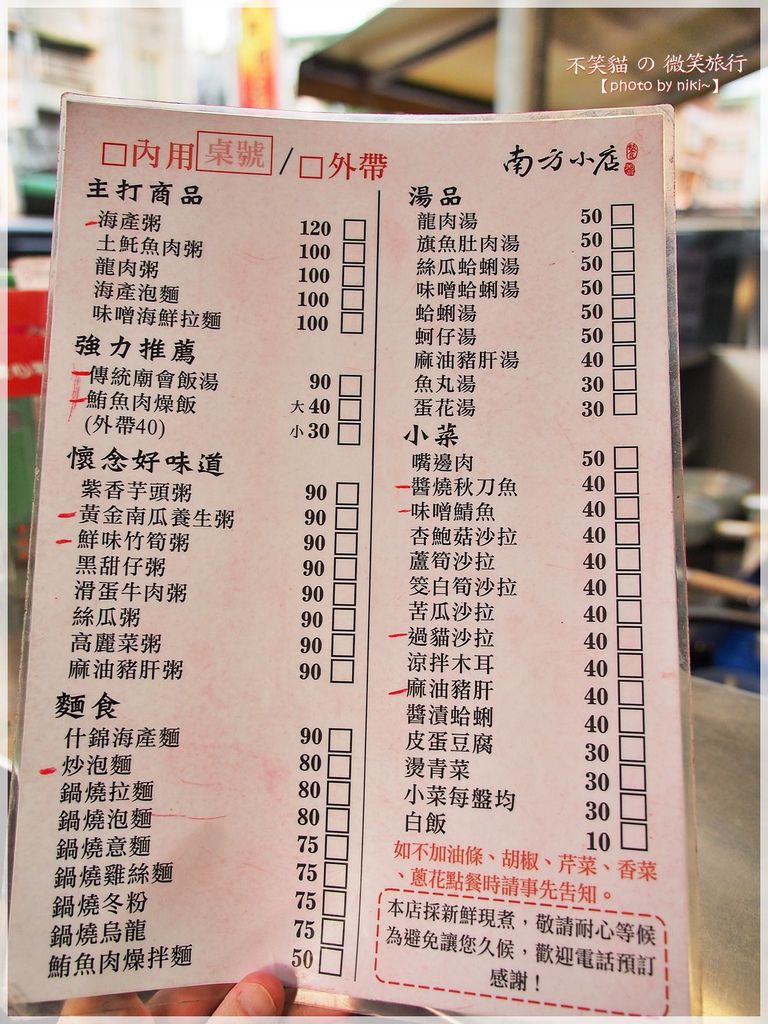 不笑貓 の 微笑旅行
【photo by niki~】
□內用 桌號 / □外帶
南方小店
主打商品
海產粥 120 □
土魠魚肉粥 100 □
龍肉粥 100 □
海產泡麵 100 □
味噌海鮮拉麵 100 □
強力推薦
傳統廟會飯湯 90 □
鮪魚肉燥飯 大40 □
(外帶40) 小30 □
懷念好味道
紫香芋頭粥 90 □
黃金南瓜養生粥 90 □
鮮味竹筍粥 90 □
黑甜仔粥 90 □
滑蛋牛肉粥 90 □
絲瓜粥 90 □
高麗菜粥 90 □
麻油豬肝粥 90 □
麵食
什錦海產麵 90 □
炒泡麵 80 □
鍋燒拉麵 80 □
鍋燒泡麵 80 □
鍋燒意麵 75 □
鍋燒雞絲麵 75 □
鍋燒冬粉 75 □
鍋燒烏龍 75 □
鮪魚肉燥拌麵 50 □
湯品
龍肉湯 50 □
旗魚肚肉湯 50 □
絲瓜蛤蜊湯 50 □
味噌蛤蜊湯 50 □
蛤蜊湯 50 □
蚵仔湯 50 □
麻油豬肝湯 40 □
魚丸湯 30 □
蛋花湯 30 □
小菜
嘴邊肉 50 □
醬燒秋刀魚 40 □
味噌鯖魚 40 □
杏鮑菇沙拉 40 □
蘆筍沙拉 40 □
筊白筍沙拉 40 □
苦瓜沙拉 40 □
過貓沙拉 40 □
涼拌木耳 40 □
麻油豬肝 40 □
醬漬蛤蜊 40 □
皮蛋豆腐 30 □
燙青菜 30 □
小菜每盤均 30 □
白飯 10 □
如不加油條、胡椒、芹菜、香菜
、蔥花點餐時請事先告知。
本店採新鮮現煮，敬請耐心等候
為避免讓您久候，歡迎電話預訂
感謝！